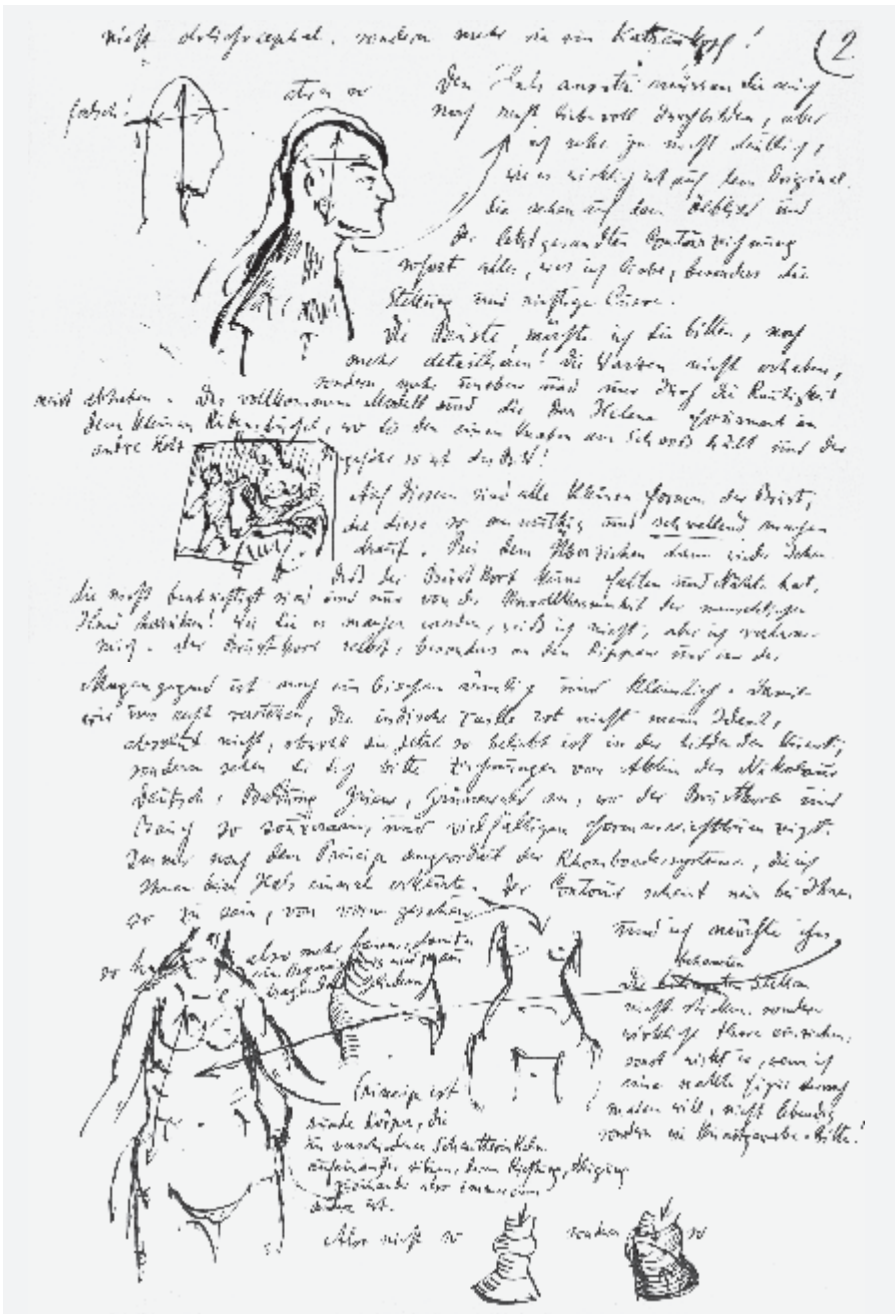 nicht dolichocephal, sondern mehr wie ein Katzenkopf!
(2
falsch!
etwa so
Den Halsansatz müssen Sie mir
noch recht liebevoll durchbilden, aber
ich sehe ja nicht deutlich,
wie es wirklich ist auf dem Original.
Sie sehen auf dem Ölbild und
der letztgesandten Contourzeichnung
sofort alles, was ich liebe, besonders die
Stellung und richtige Curve.
Die Brüste, möchte ich Sie bitten, noch
mehr detaillieren! Die Warzen nicht erheben,
sondern mehr uneben und nur durch die Rauhigkeit
Das vollkommene Modell sind die der Helene Fourment in
dem kleinen Rubensbüchel, wo sie den einen Knaben am Schooß hält und der
andre steht
ungefähr so ist das Bild!
Auf diesem sind alle kleinen Formen der Brust,
die diese so anmuthig und schwellend machen
drauf. Bei dem Überziehen dann wieder sehen
daß der Brustkorb keine Falten und Nähte hat,
die nicht berechtigt sind und nur von der Unvollkommenheit der menschlichen
Hand herrühren! Wie Sie es machen werden, weiß ich nicht, aber ich
mich. Der Brustkorb selbst, besonders an den Rippen und an der
Magengegend ist noch ein bischen ärmlich und kleinlich. Damit
wir uns recht verstehen, die indische ist nicht mein Ideal,
absolut nicht, obwohl sie jetzt so beliebt ist in der bildenden Kunst,
sondern sehen Sie sich bitte Zeichnungen von Nikolaus
Deutsch, Baldung Grien, Grünewald an, wo der Brustkorb und
Bauch so und vielfältigen Formenreichthum zeigt.
Immer nach dem Princip angeordnet der Rhomboedersysteme, die ich
Ihnen beim Hals einmal erklärte. Der Contour scheint mir bei Ihnen
so zu sein, von vorne gesehen
und ich möchte ihn
so
also mehr
Die Stellen
nicht sticken, sondern
wirklich Haare einziehen,
sonst wirkt es, wenn ich
eine nackte Figur darnach
malen will, nicht lebendig
sondern wie Kunstgewerbe. Bitte!
Princip ist
runde Körper, die
in verschiedenen Schnittwinkeln
aufeinander sitzen, deren Richtung, Neigung
zueinander also immer eine
andre ist.
Also nicht so
sondern so